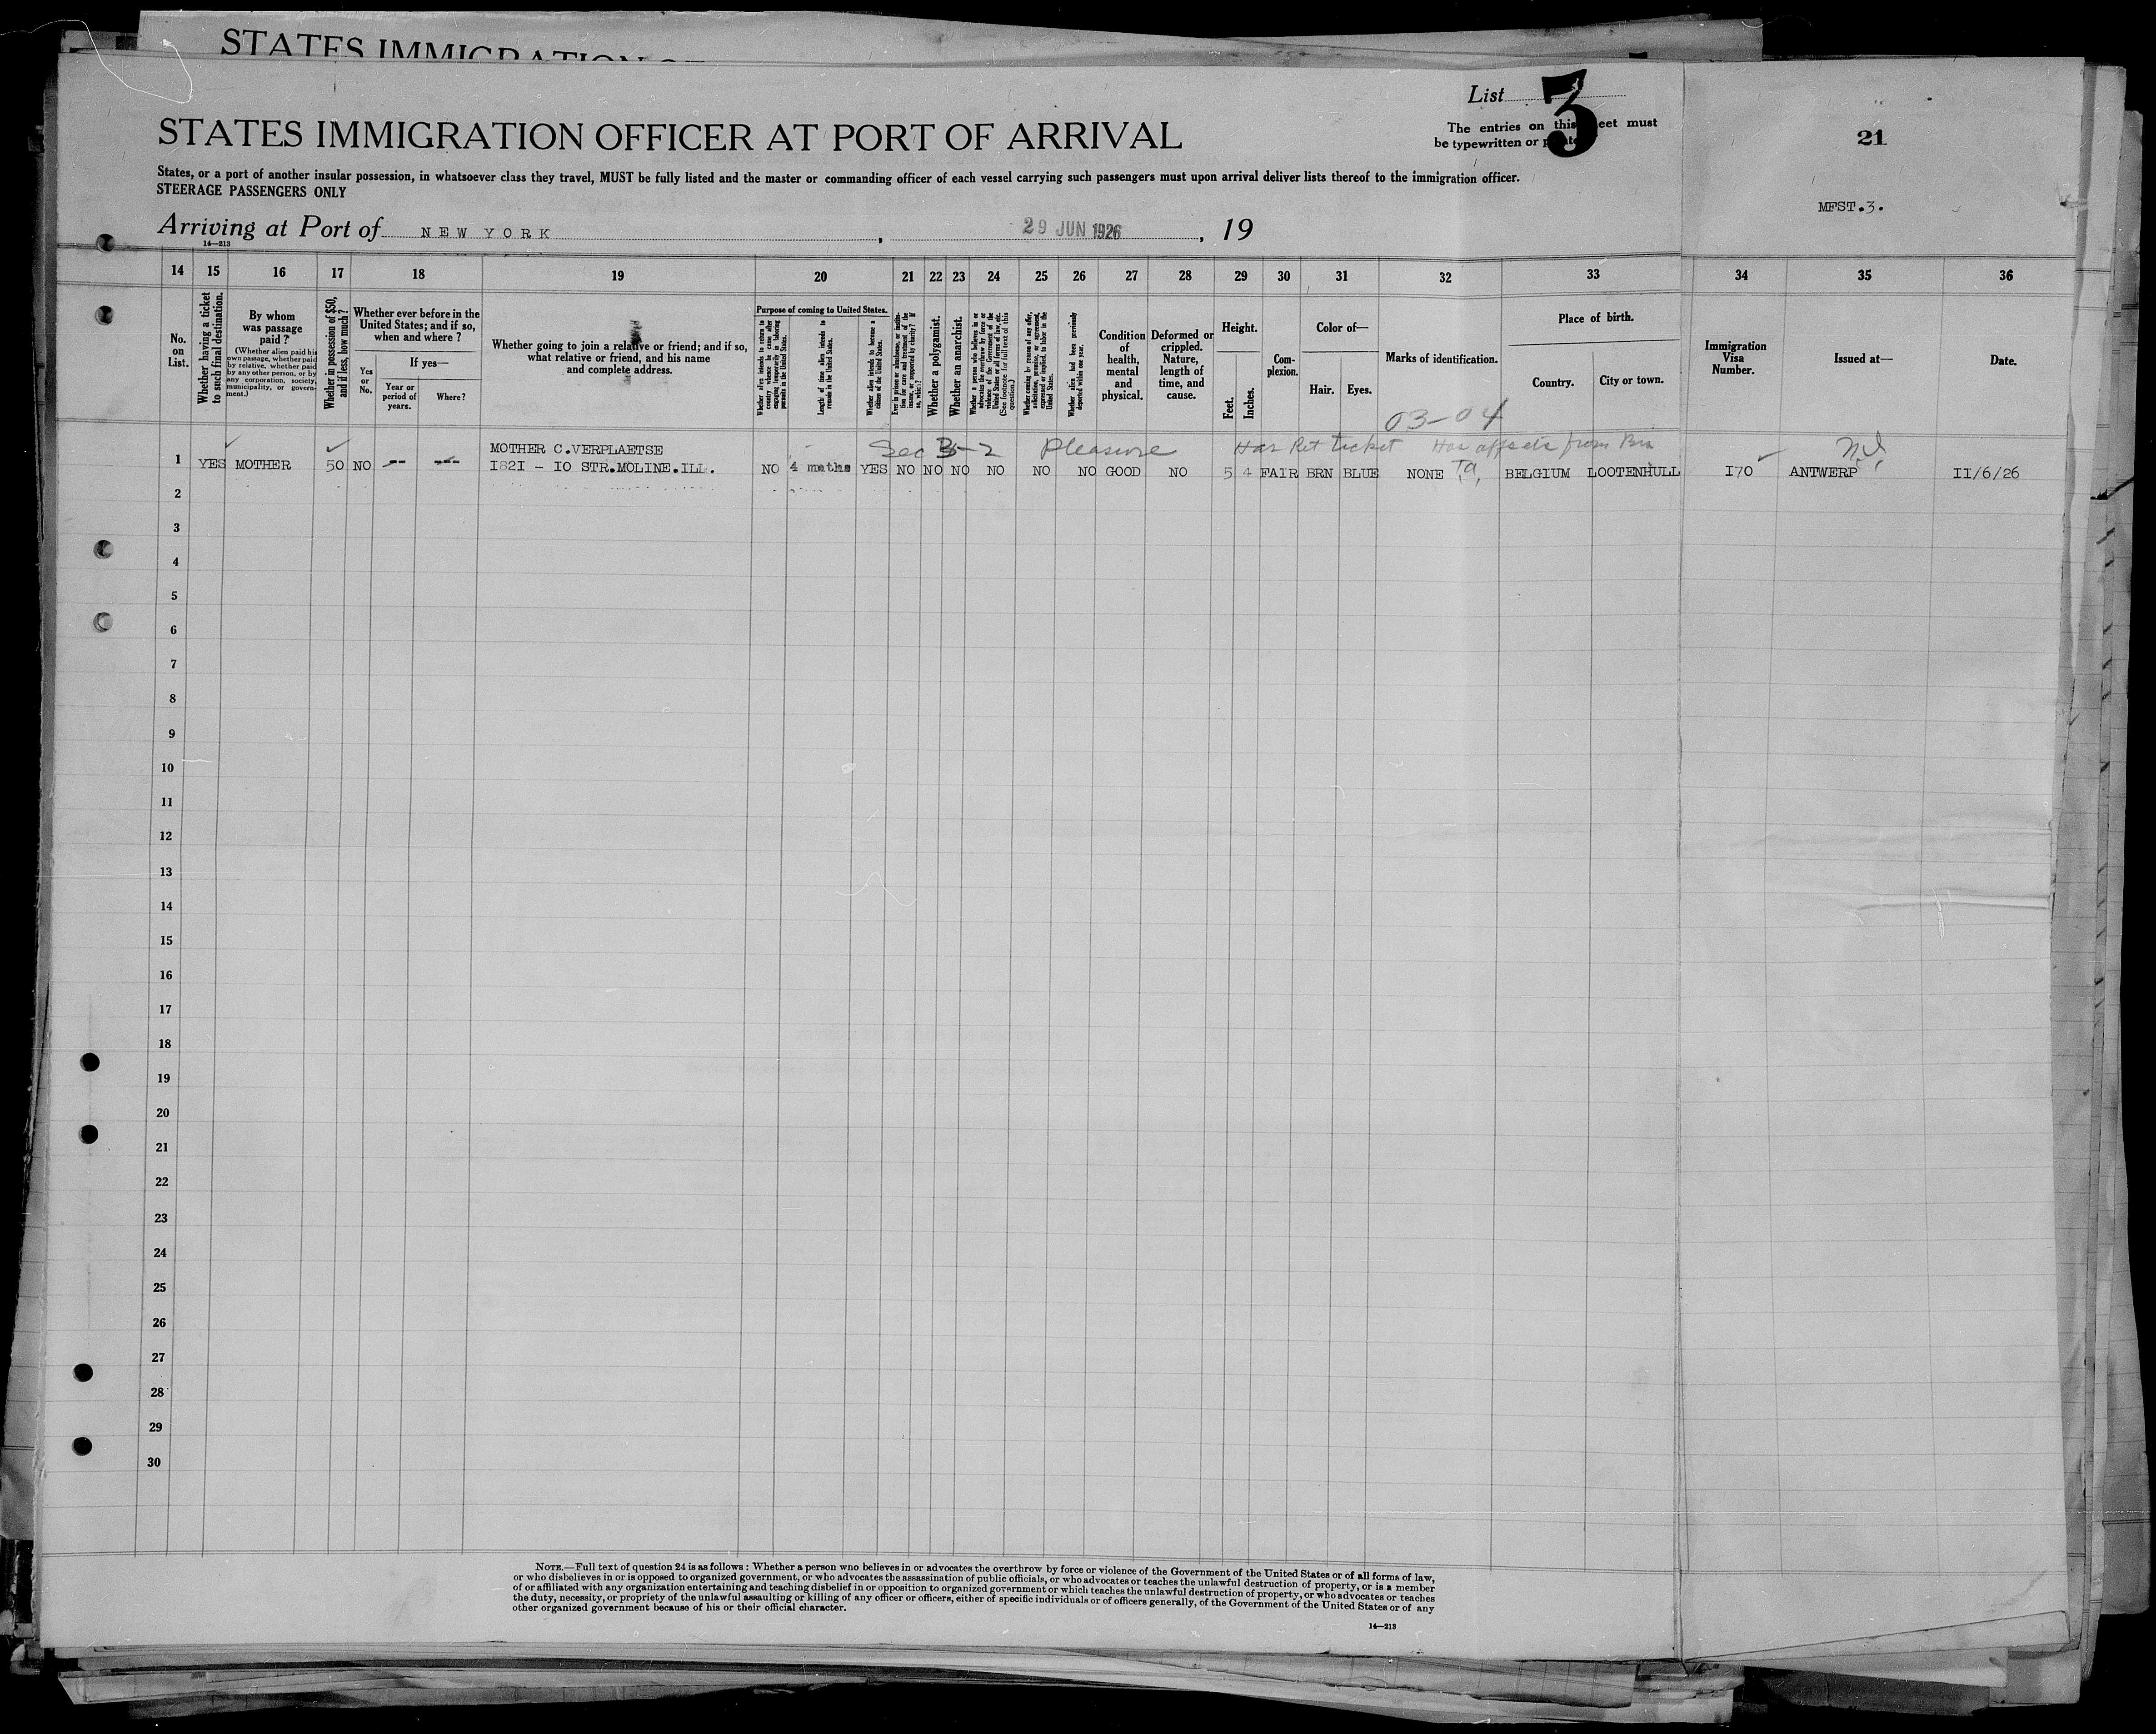 STATES IMMIGRATION
List 3
STATES IMMIGRATION OFFICER AT PORT OF ARRIVAL
The entries on this sheet must
be typewritten or printed
21
States, or a port of another insular possession, in whatsoever class they travel, MUST be fully listed and the master or commanding officer of each vessel carrying such passengers must upon arrival deliver lists thereof to the immigration officer.
STEERAGE PASSENGERS ONLY
MFST.3.
Arriving at Port of NEW YORK, 29 JUN 1926, 19
14—213
14 15 16 17 18 19 20 21 22 23 24 25 26 27 28 29 30 31 32 33 34 35 36
No. on List.
Whether having a ticket to such final destination.
By whom was passage paid?
(Whether alien paid his own passage, whether paid by relative, whether paid by any other person, or by any corporation, society, municipality, or government.)
Whether in possession of $50, and if less, how much?
Whether ever before in the United States; and if so, when and where?
Yes or No.
If yes—
Year or period of years.
Where?
Whether going to join a relative or friend; and if so, what relative or friend, and his name and complete address.
Purpose of coming to United States.
Whether alien intends to return to country whence he came after engaging temporarily in laboring pursuits in the United States.
Length of time alien intends to remain in the United States.
Whether alien intends to become a citizen of the United States.
Ever in prison or almshouse, or institution for care and treatment of the insane, or supported by charity? If so, which?
Whether a polygamist.
Whether an anarchist.
Whether a person who believes in or advocates the overthrow by force or violence of the Government of the United States or all forms of law, etc. (See footnote for full text of this question.)
Whether coming by reason of any offer, solicitation, promise, or agreement, expressed or implied, to labor in the United States.
Whether alien had been previously deported within one year.
Condition of health, mental and physical.
Deformed or crippled. Nature, length of time, and cause.
Height.
Feet.
Inches.
Complexion.
Color of—
Hair.
Eyes.
Marks of identification.
Place of birth.
Country.
City or town.
Immigration Visa Number.
Issued at—
Date.
03-04
MOTHER C.VERPLAETSE Sec 3-2 Pleasure Has Ret ticket Has affects from Bro
1 YES MOTHER 50 NO -- -- I82I - IO STR.MOLINE.ILL. NO 4 moths YES NO NO NO NO NO NO GOOD NO 5 4 FAIR BRN BLUE NONE BELGIUM LOOTENHULL I70 ANTWERP II/6/26
2
3
4
5
6
7
8
9
10
11
12
13
14
15
16
17
18
19
20
21
22
23
24
25
26
27
28
29
30
NOTE.—Full text of question 24 is as follows: Whether a person who believes in or advocates the overthrow by force or violence of the Government of the United States or of all forms of law,
or who disbelieves in or is opposed to organized government, or who advocates the assassination of public officials, or who advocates or teaches the unlawful destruction of property, or is a member
of or affiliated with any organization entertaining and teaching disbelief in or opposition to organized government or which teaches the unlawful destruction of property, or who advocates or teaches
the duty, necessity, or propriety of the unlawful assaulting or killing of any officer or officers, either of specific individuals or of officers generally, of the Government of the United States or of any
other organized government because of his or their official character.
14—213